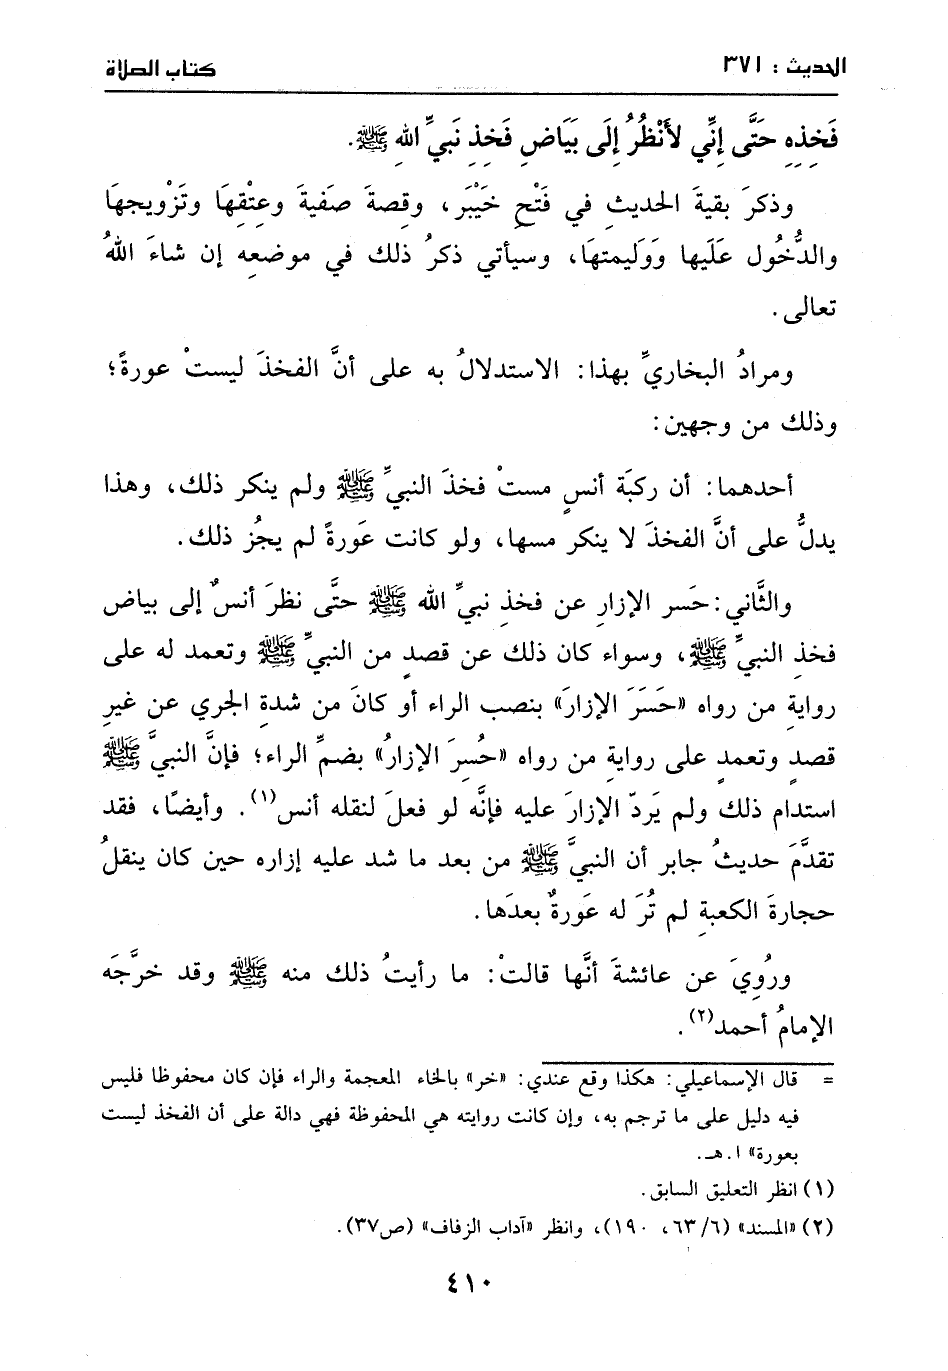 الحديث : ٣٧١
كتاب الصلاة
فَخِذِهِ حَتَّى إنِّي لأَنْظُرُ إلَى بَيَاضِ فَخِذِ نَبيِّ اللهِ ﷺ.
وذكرَ بقيةَ الحديثِ في فَتْحِ خَيْبَرَ، وقصةَ صَفيةَ وعتْقِهَا وتَزْويجهَا
والدُّخُول عَلَيها وَوَليمتهَا، وسيأتي ذكرُ ذلك في موضعِه إن شاءَ اللهُ
تعالى.
ومرادُ البخاريِّ بهذا: الاستدلالُ به على أنَّ الفخذَ ليستْ عورةً؛
وذلك من وجهين:
أحدهما: أن ركبَة أنسٍ مستْ فخذَ النبيِّ ﷺ ولم ينكر ذلك، وهذا
يدلُّ على أنَّ الفخذَ لا ينكر مسها، ولو كانت عَورةً لم يجُز ذلك.
والثَّاني: حَسر الإزارِ عن فخذِ نبيِّ الله ﷺ حتَّى نظرَ أنسٌ إلى بياض
فخذِ النبيِّ ﷺ، وسواء كان ذلك عن قصدٍ من النبيِّ ﷺ وتعمد له على
روايةِ من رواه «حَسَرَ الإزارَ» بنصب الراء أو كانَ من شدةِ الجري عن غيرِ
قصدٍ وتعمدٍ على روايةِ من رواه «حُسِرَ الإزارُ» بضمِّ الراء؛ فإنَّ النبيَّ ﷺ
استدام ذلك ولم يَردّ الإزارَ عليه فإنَّه لو فعلَ لنقله أنس(١). وأيضًا، فقد
تقدَّمَ حديثُ جابر أن النبيَّ ﷺ من بعد ما شد عليه إزاره حين كان ينقلُ
حجارةَ الكعبةِ لم تُرَ له عَورةٌ بعدَها.
ورُوِيَ عن عائشةَ أنَّها قالتْ: ما رأيتُ ذلك منه ﷺ وقد خرَّجَه
الإمامُ أحمد(٢).
= قال الإسماعيلي: هكذا وقع عندي: «خر» بالخاء المعجمة والراء فإن كان محفوظا فليس
فيه دليل على ما ترجم به، وإن كانت روايته هي المحفوظة فهي دالة على أن الفخذ ليست
بعورة» ا.هـ.
(١) انظر التعليق السابق.
(٢) «المسند» (٦/ ٦٣، ١٩٠)، وانظر «آداب الزفاف» (ص٣٧).
٤١٠